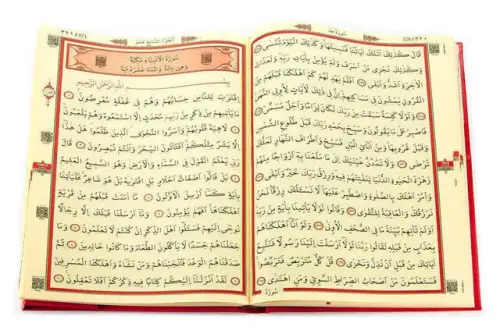 سُورَةُ طٰهٰ
قَالَ كَذٰلِكَ اَتَتْكَ اٰيَاتُنَا فَنَسِيتَهَا وَكَذٰلِكَ الْيَوْمَ تُنْسٰى
وَكَذٰلِكَ نَجْزِي مَنْ اَسْرَفَ وَلَمْ يُؤْمِنْ بِاٰيَاتِ رَبِّهِ وَلَعَذَابُ
الْاٰخِرَةِ اَشَدُّ وَاَبْقٰى اَفَلَمْ يَهْدِ لَهُمْ كَمْ اَهْلَكْنَا قَبْلَهُمْ مِنَ
الْقُرُونِ يَمْشُونَ فِي مَسَاكِنِهِمْ اِنَّ فِي ذٰلِكَ لَاٰيَاتٍ لِاُولِي النُّهٰى
وَلَوْلَا كَلِمَةٌ سَبَقَتْ مِنْ رَبِّكَ لَكَانَ لِزَامًا وَاَجَلٌ مُسَمًّى
فَاصْبِرْ عَلٰى مَا يَقُولُونَ وَسَبِّحْ بِحَمْدِ رَبِّكَ قَبْلَ طُلُوعِ الشَّمْسِ
وَقَبْلَ غُرُوبِهَا وَمِنْ اٰنَائِ الَّيْلِ فَسَبِّحْ وَاَطْرَافَ النَّهَارِ لَعَلَّكَ
تَرْضٰى وَلَا تَمُدَّنَّ عَيْنَيْكَ اِلٰى مَا مَتَّعْنَا بِهِ اَزْوَاجًا مِنْهُمْ
زَهْرَةَ الْحَيٰوةِ الدُّنْيَا لِنَفْتِنَهُمْ فِيهِ وَرِزْقُ رَبِّكَ خَيْرٌ وَاَبْقٰى
وَأْمُرْ اَهْلَكَ بِالصَّلٰوةِ وَاصْطَبِرْ عَلَيْهَا لَا نَسْـَٔلُكَ رِزْقًا نَحْنُ
نَرْزُقُكَ وَالْعَاقِبَةُ لِلتَّقْوٰى وَقَالُوا لَوْلَا يَأْتِينَا بِاٰيَةٍ مِنْ رَبِّهِ
اَوَلَمْ تَأْتِهِمْ بَيِّنَةُ مَا فِي الصُّحُفِ الْاُولٰى وَلَوْ اَنَّا اَهْلَكْنَاهُمْ
بِعَذَابٍ مِنْ قَبْلِهِ لَقَالُوا رَبَّنَا لَوْلَا اَرْسَلْتَ اِلَيْنَا رَسُولًا فَنَتَّبِعَ
اٰيَاتِكَ مِنْ قَبْلِ اَنْ نَذِلَّ وَنَخْزٰى قُلْ كُلٌّ مُتَرَبِّصٌ فَتَرَبَّصُوا
فَسَتَعْلَمُونَ مَنْ اَصْحَابُ الصِّرَاطِ السَّوِيِّ وَمَنِ اهْتَدٰى
اَلْجُزْءُ السَّابِعَ عَشَرَ
٣٢١/321
سُورَةُ الْاَنْبِيَاءِ مَكِّيَّةٌ
وَهِيَ مِائَةٌ وَاثْنَتَا عَشْرَةَ اٰيَةً
بِسْمِ اللّٰهِ الرَّحْمٰنِ الرَّحِيمِ
اِقْتَرَبَ لِلنَّاسِ حِسَابُهُمْ وَهُمْ فِي غَفْلَةٍ مُعْرِضُونَ
مَا يَأْتِيهِمْ مِنْ ذِكْرٍ مِنْ رَبِّهِمْ مُحْدَثٍ اِلَّا اسْتَمَعُوهُ وَهُمْ يَلْعَبُونَ
لَاهِيَةً قُلُوبُهُمْ وَاَسَرُّوا النَّجْوَى الَّذِينَ ظَلَمُوا هَلْ هٰذَا
اِلَّا بَشَرٌ مِثْلُكُمْ اَفَتَأْتُونَ السِّحْرَ وَاَنْتُمْ تُبْصِرُونَ قَالَ
رَبِّي يَعْلَمُ الْقَوْلَ فِي السَّمَاءِ وَالْاَرْضِ وَهُوَ السَّمِيعُ الْعَلِيمُ
بَلْ قَالُوا اَضْغَاثُ اَحْلَامٍ بَلِ افْتَرٰيهُ بَلْ هُوَ شَاعِرٌ فَلْيَأْتِنَا
بِاٰيَةٍ كَمَا اُرْسِلَ الْاَوَّلُونَ مَا اٰمَنَتْ قَبْلَهُمْ مِنْ قَرْيَةٍ
اَهْلَكْنَاهَا اَفَهُمْ يُؤْمِنُونَ وَمَا اَرْسَلْنَا قَبْلَكَ اِلَّا رِجَالًا
نُوحِي اِلَيْهِمْ فَسْـَٔلُوا اَهْلَ الذِّكْرِ اِنْ كُنْتُمْ لَا تَعْلَمُونَ وَمَا
جَعَلْنَاهُمْ جَسَدًا لَا يَأْكُلُونَ الطَّعَامَ وَمَا كَانُوا خَالِدِينَ ثُمَّ
صَدَقْنَاهُمُ الْوَعْدَ فَاَنْجَيْنَاهُمْ وَمَنْ نَشَاءُ وَاَهْلَكْنَا الْمُسْرِفِينَ
لَقَدْ اَنْزَلْنَا اِلَيْكُمْ كِتَابًا فِيهِ ذِكْرُكُمْ اَفَلَا تَعْقِلُونَ